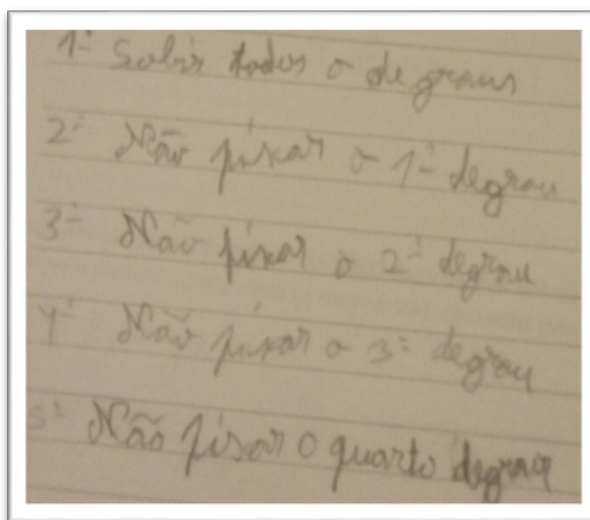 1- Subir todos o degraus
2- Não pixar o 1- degrau
3- Não pixar o 2- degrau
4- Não pixar o 3- degrau
5- Não pisar o quarto degrau